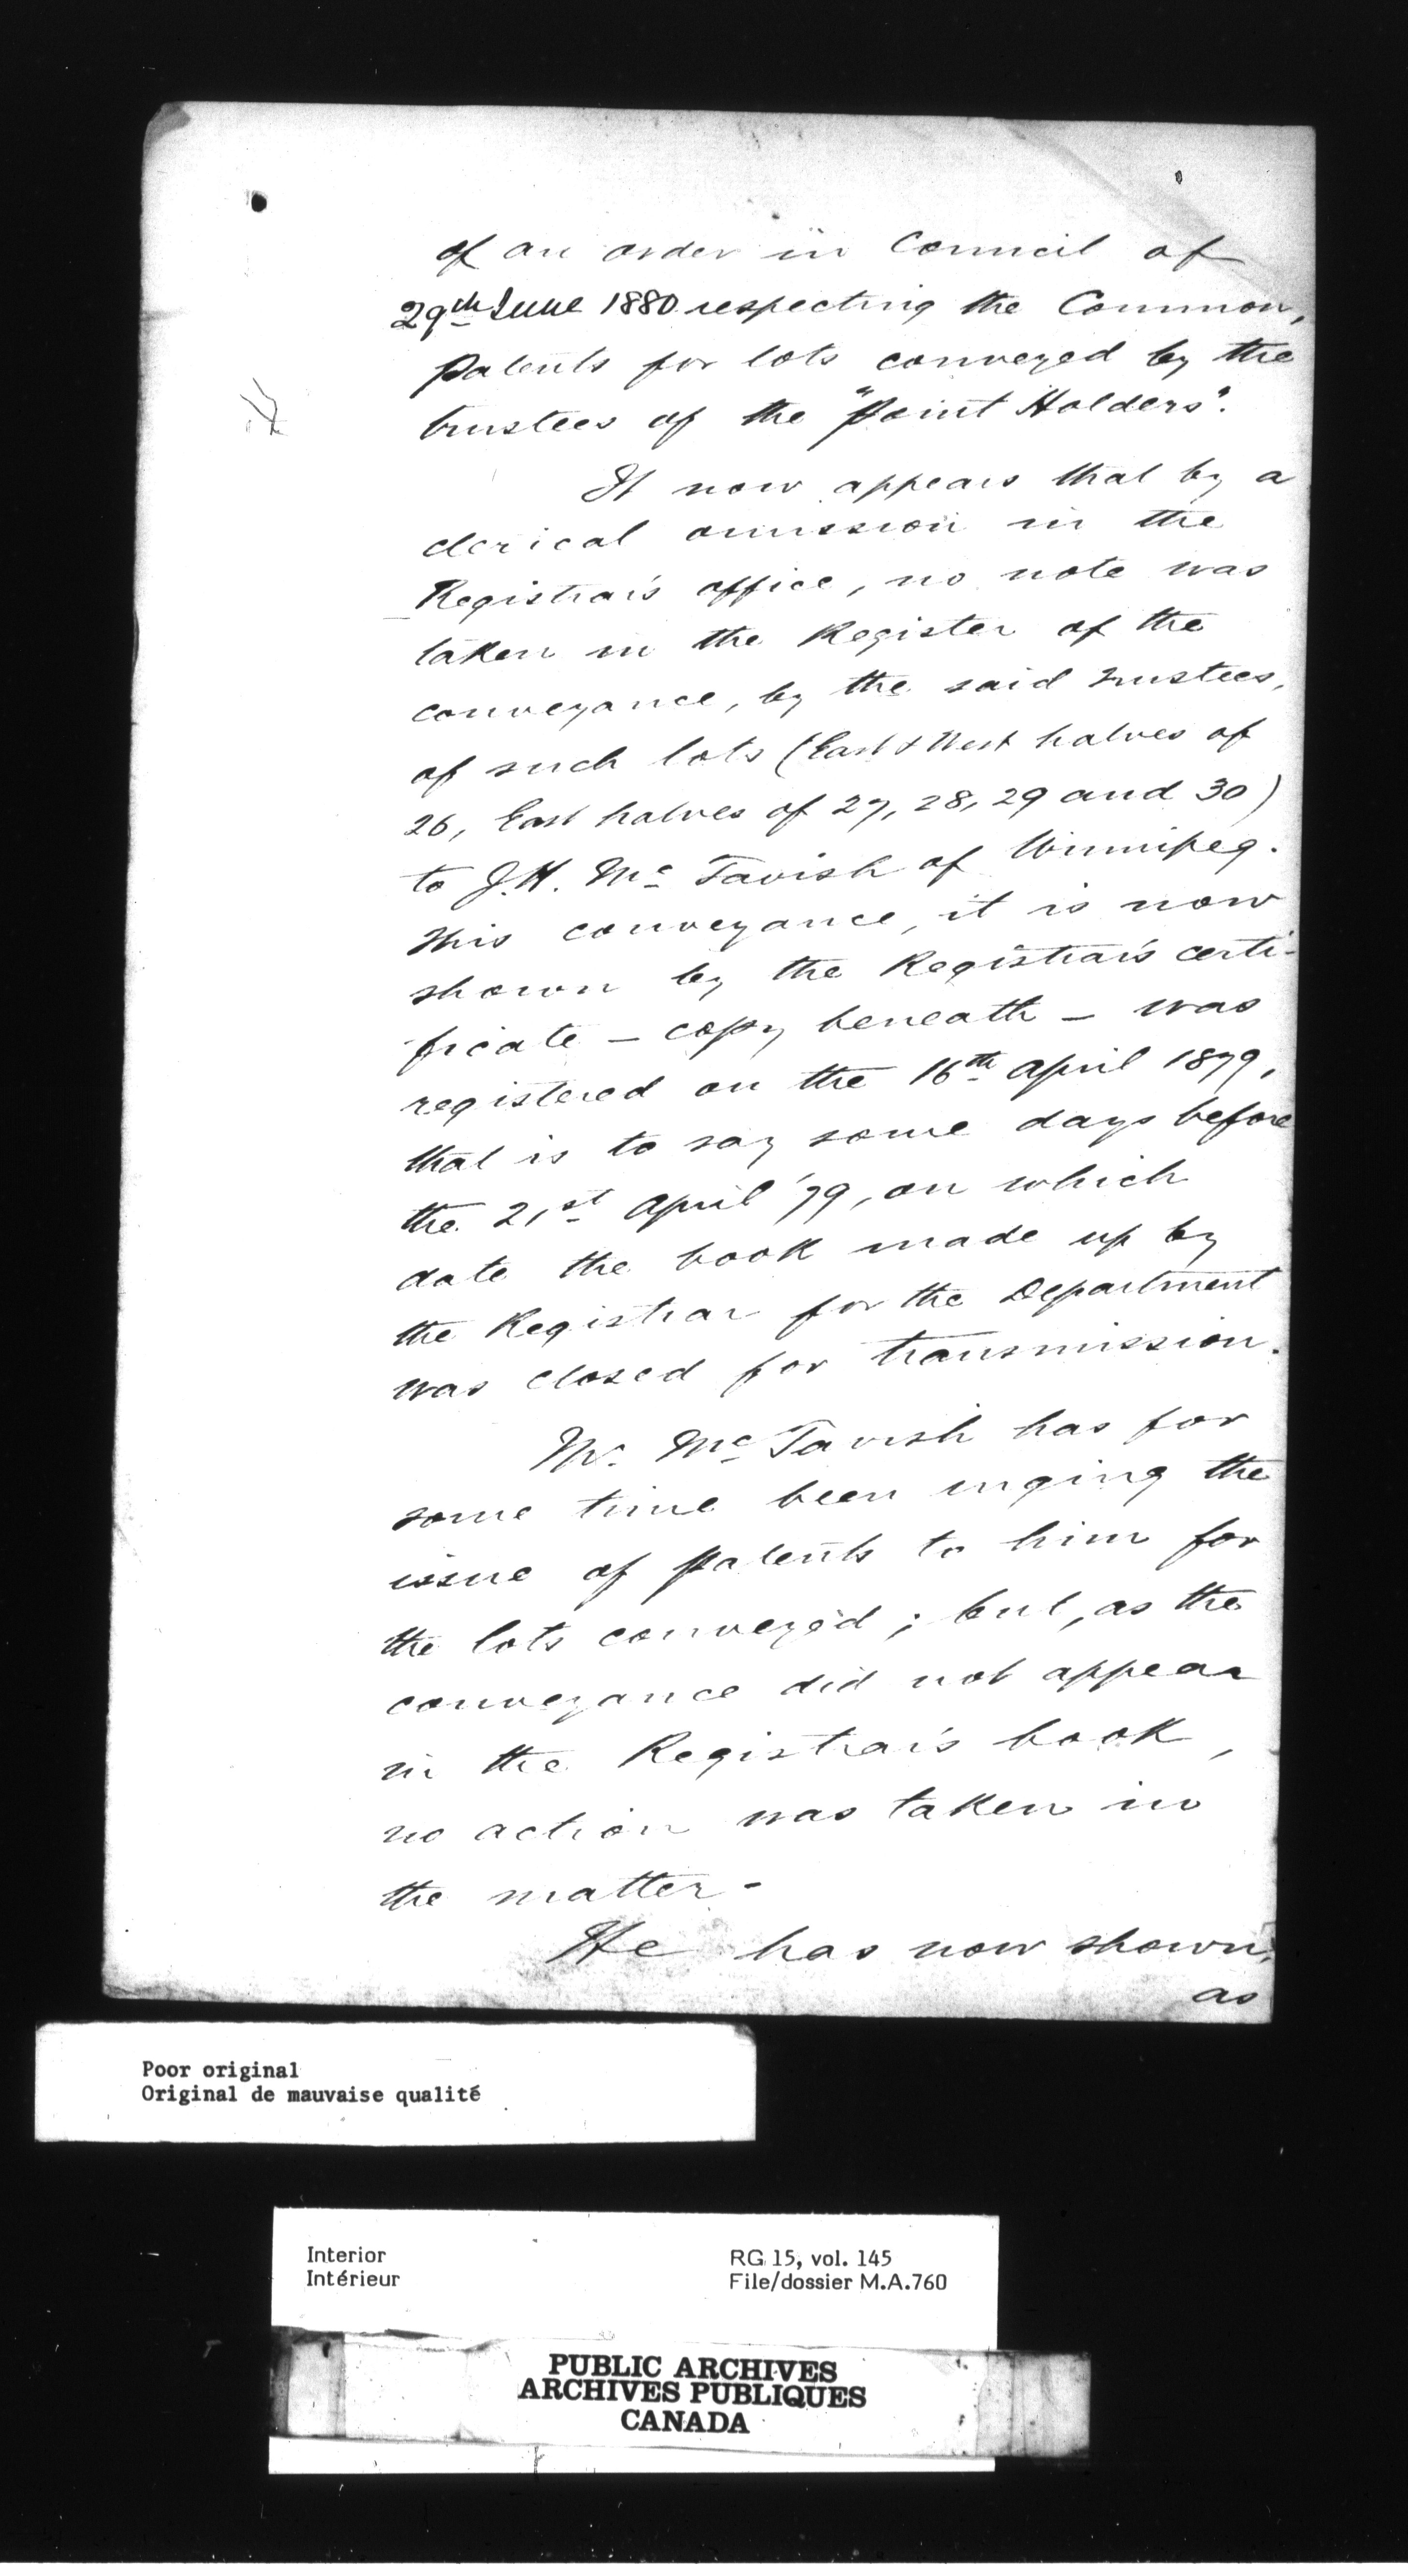 of an order in Council of
29th June 1880 respecting the Common,
Patents for lots conveyed by the
trustees of the "Point Holders".
It now appears that by a
clerical omission in the
Registrar's office, no note was
taken in the Register of the
conveyance, by the said trustees,
of such lots (East & West halves of
26, East halves of 27, 28, 29 and 30)
to J.H. Mc Tavish of Winnipeg.
This conveyance, it is now
shown by the Registrar's certi-
ficate - copy beneath - was
registered on the 16th April 1879,
that is to say some days before
the 21st April '79, on which
date the book made up by
the Registrar for the Department
was closed for transmission.
Mr. Mc Tavish has for
some time been urging the
issue of Patents to him for
the lots conveyed; but, as the
conveyance did not appear
in the Registrar's book,
no action was taken in
the matter -
He has now shown,
as
Poor original
Original de mauvaise qualité
Interior
Intérieur
RG 15, vol. 145
File/dossier M.A.760
PUBLIC ARCHIVES
ARCHIVES PUBLIQUES
CANADA